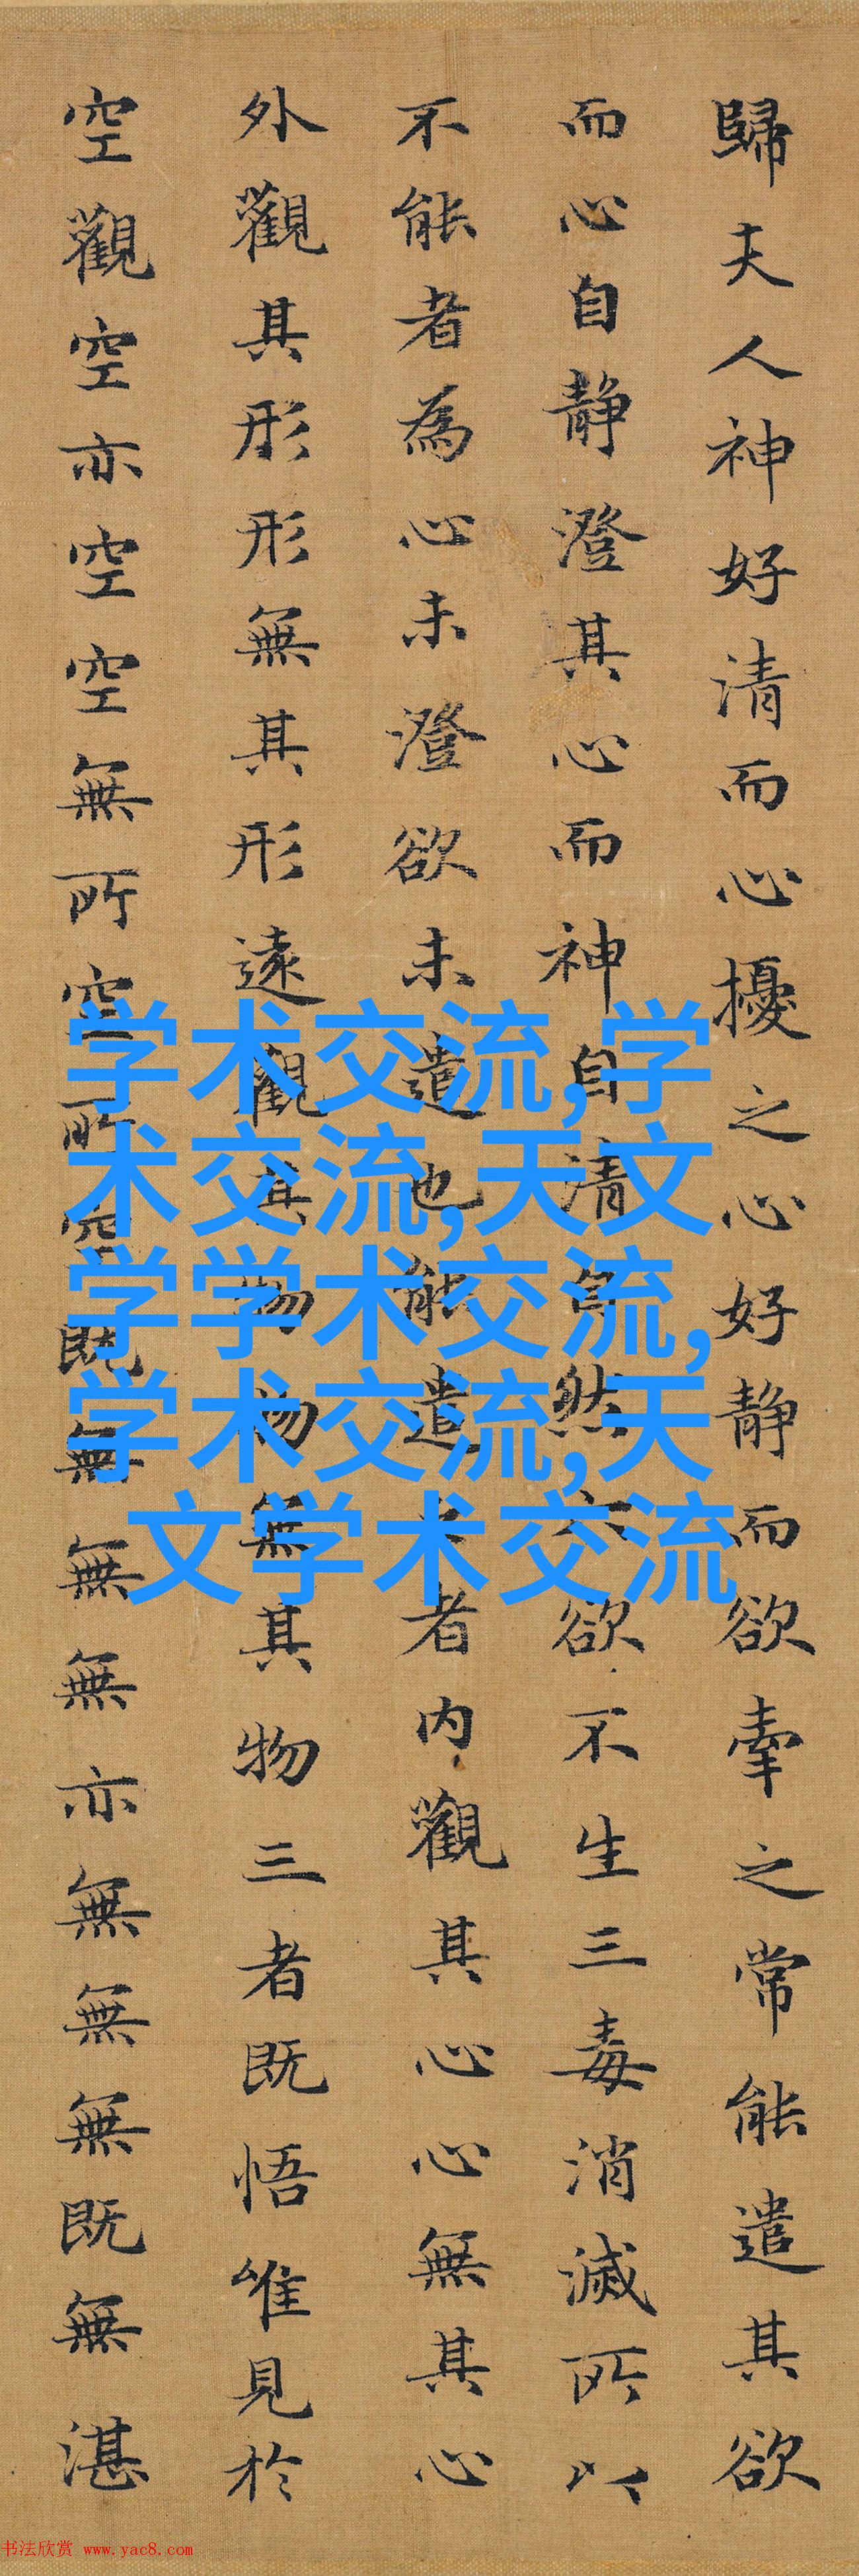 歸夫人神好清而心擾之心好静而欲牽之常能遣其欲
而心自静澄其心而神自清自然六欲不生三毒消滅所以
不能者為心未澄欲未遣也能遣之者内觀其心心無其心
外觀其形形無其形遠觀其物物無其物三者既悟唯見於
空觀空亦空空無所空所空既無無無亦無無無既無湛
学术交流,学
术交流,天文
学学术交流,
学术交流,天
文学术交流
书法欣赏 www.yac8.com